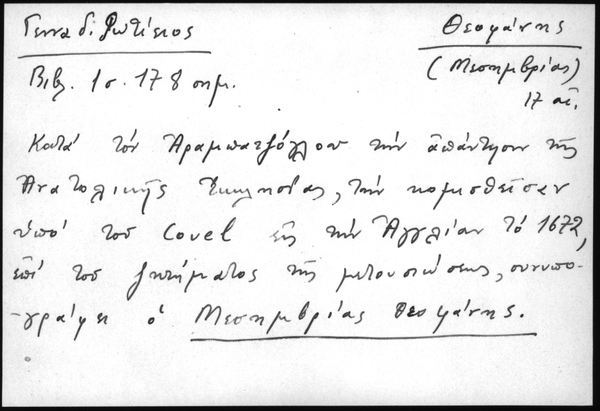 Γεννάδ. Φωτίειος
Θεοφάνης
Βιβ. 1 σ. 178 σημ.
(Μεσημβρίας)
17 αἰ.
Κατά τόν Ἀραμπατζόγλου τήν ἀπάντησιν τῆς
Ἀνατολικῆς Ἐκκλησίας, τήν κομισθεῖσαν
ὑπό τοῦ Covel εἰς τήν Ἀγγλίαν τό 1672,
ἐπί τοῦ ζητήματος τῆς μετουσιώσεως, συνυπο-
-γράφει ὁ Μεσημβρίας Θεοφάνης.